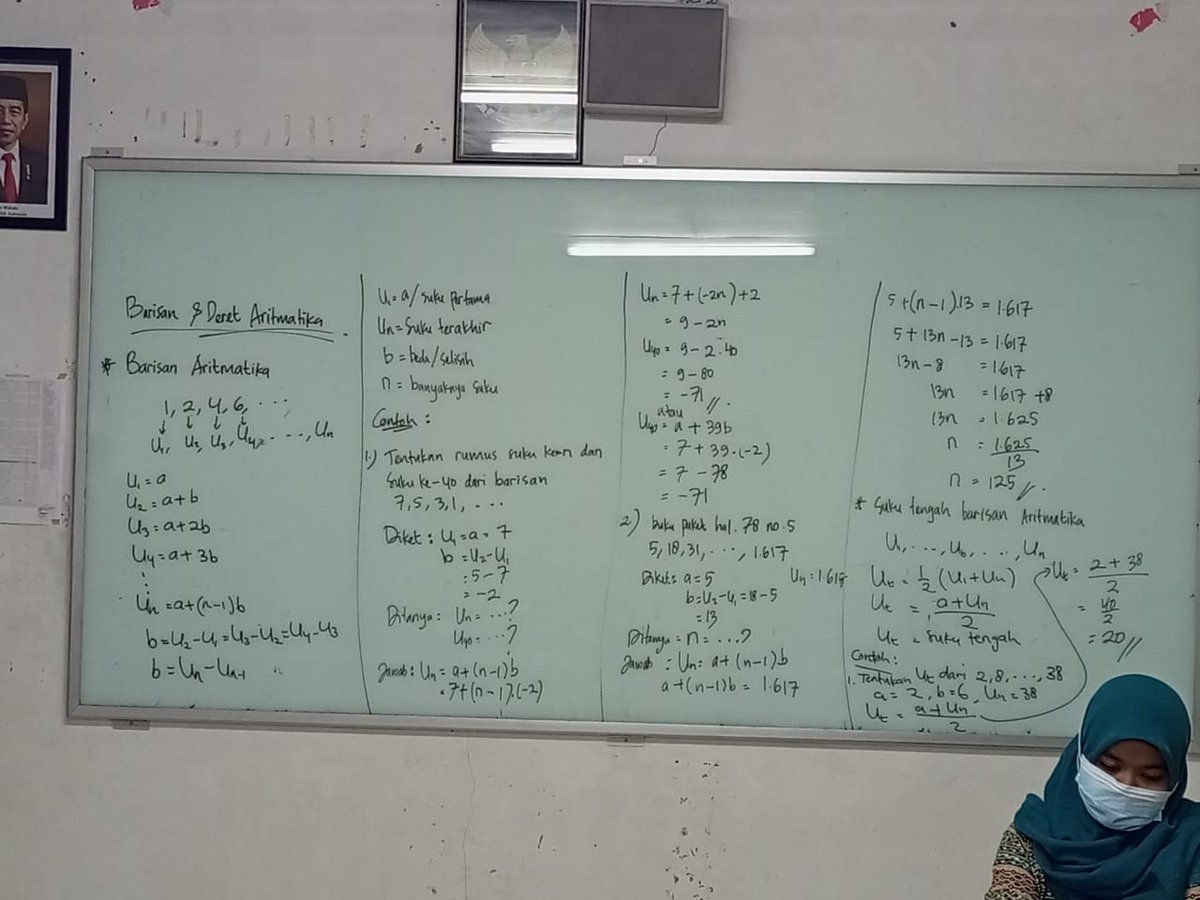 Barisan & Deret Aritmatika
* Barisan Aritmatika
1, 2, 4, 6, ...
↓ ↓ ↓ ↓
U₁, U₂, U₃, U₄, ..., Un
U₁ = a
U₂ = a+b
U₃ = a+2b
U₄ = a+3b
Un = a+(n-1)b
b = U₂-U₁ = U₃-U₂ = U₄-U₃
b = Un - Un-1
U₁ = a/suku pertama
Un = Suku terakhir
b = beda/selisih
n = banyaknya suku
Contoh :
1.) Tentukan rumus suku ke-n dan
Suku ke-40 dari barisan
7, 5, 3, 1, ...
Diket : U₁ = a = 7
b = U₂-U₁
= 5-7
= -2
Ditanya : Un = ...?
U₄₀ = ...?
Jawab : Un = a+(n-1)b
= 7+(n-1).(-2)
Un = 7+(-2n)+2
= 9-2n
U₄₀ = 9-2.40
= 9-80
= -71 //.
atau
U₄₀ = a + 39b
= 7 + 39.(-2)
= 7 - 78
= -71
2) buku paket hal. 78 no. 5
5, 18, 31, ..., 1.617
Diket : a = 5 Un = 1.615
b = U₂-U₁ = 18-5
= 13
Ditanya = n = ...?
Jawab : Un = a+(n-1)b
a+(n-1)b = 1.617
5+(n-1).13 = 1.617
5+13n-13 = 1.617
13n-8 = 1.617
13n = 1.617 +8
13n = 1.625
n = 1.625
13
n = 125 //.
* Suku tengah barisan Aritmatika
U₁, ..., Ut, ..., Un
Ut = ½ (U₁+Un)
Ut = a+Un
2
Ut = suku tengah
Contoh :
1. Tentukan Ut dari 2, 8, ..., 38
a = 2, b = 6, Un = 38
Ut = a+Un
2
Ut = 2+38
2
= 40
2
= 20 //